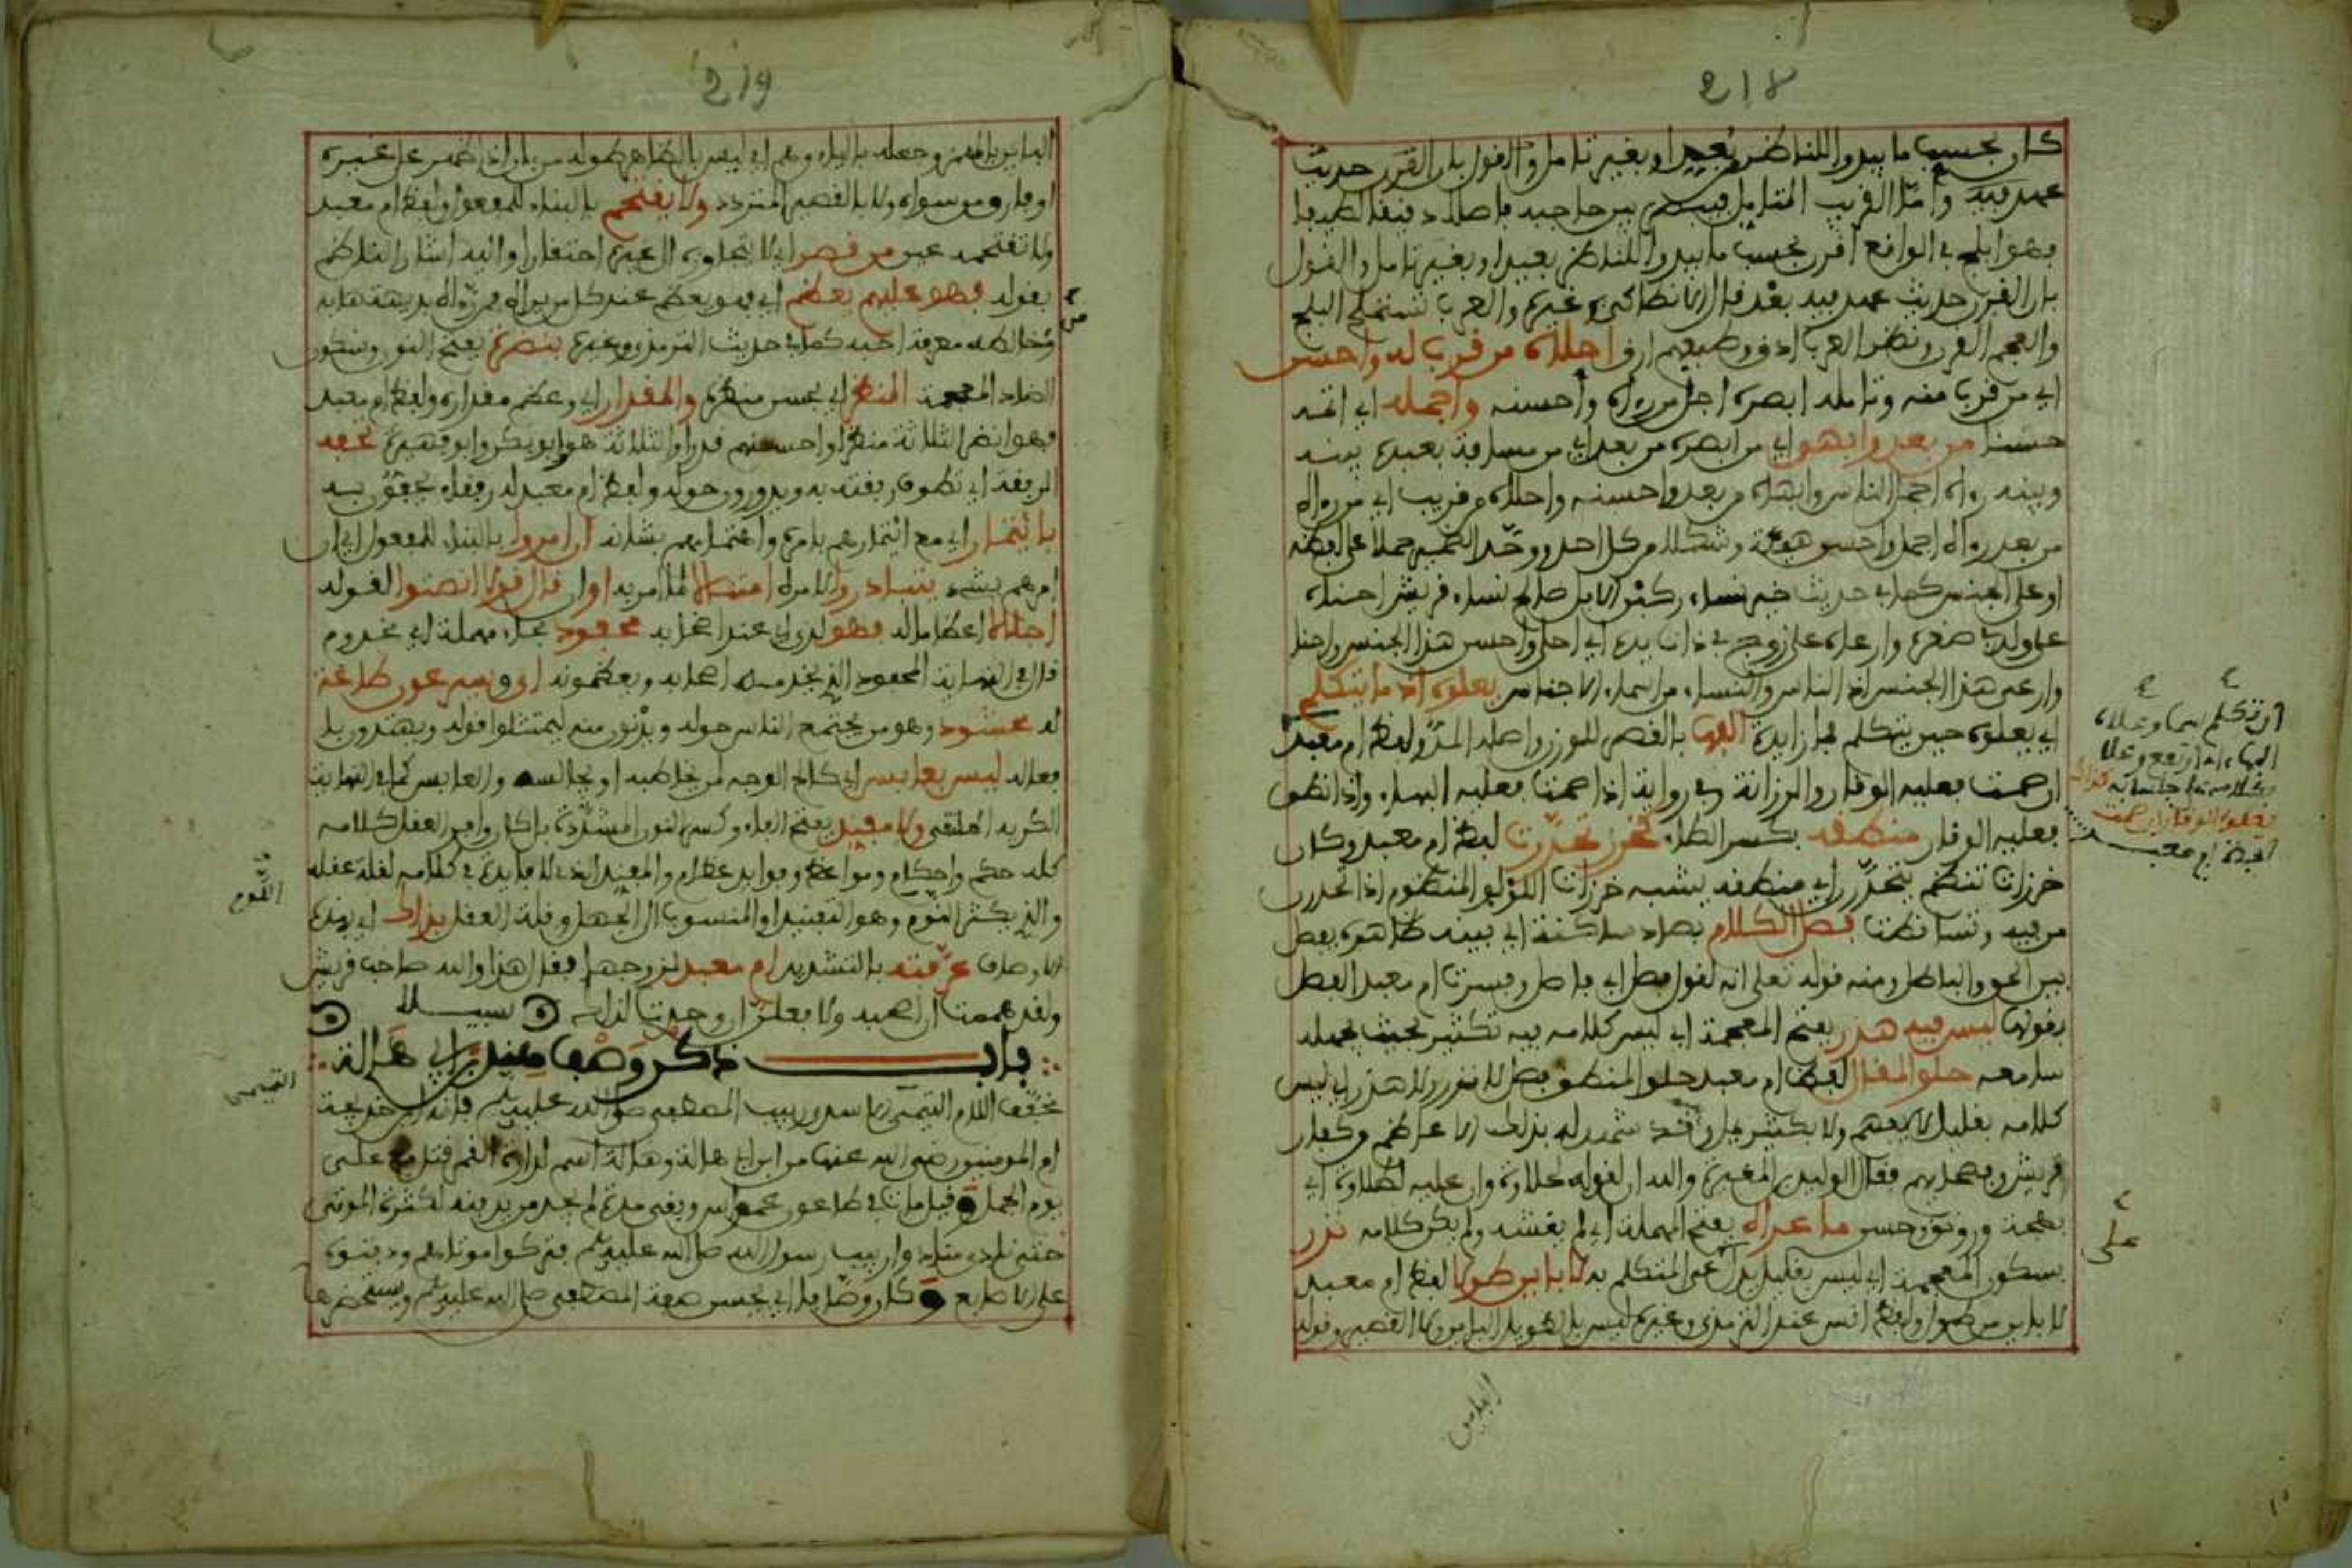 218
كان بحسب ما يبدو للناظر بعيدا وبغير تامل والقول بان القرن حديث
عهد فيه وأما القريب المتامل فيبصر بين حاجبيه فاصلا دقيقا لطيفا
فهو ابلج في الواقع اقرن بحسب ما يبدو للناظر بعيدا وبغير تامل والقول
بان القرن حديث عهد فيه بعد قال الانطاكي وغيره والعرب تستملح البلج
والعجم القرن ونظر العرب ادق وطبعهم ارق احلاه من قرب له واحسن
اي من قرب منه وتامله ابصره اجل من رءاه وأحسنه وأجمله اي اتمه
حسنا من بعد وابهى اي من ابصره من بعد اي من مسافة بعيدة بينه
وبينه رءاه اجمل الناس وابهاه من بعد واحسنه واحلاه من قريب اي من رءاه
من بعد رءاه اجمل واحسن هيئة وشكلا من كل احد ووحد الضمير حملا على لفظه
او على الجنس كما في حديث خير نساء ركبن الابل صالح نساء قريش احناه
على ولد في صغره وارعاه على زوج في ذات يده اي احلى واحسن هذا الجنس واحنا
وارعى هذا الجنس اذ الناس والنساء من اسماء الاجناس يعلوه اذ ما يتكلم
اي يعلوه حين يتكلم فما زايدة البها بالقصر للوزن واصله المد ولفظ ام معبد
ان صمت فعليه الوقار والرزانة وفي رواية اذا صمت فعليه البهاء واذا نطق
فعليه الوقار منطقه بكسر الطاء خرز تحدرت لفظ ام معبد وكان
خرزات تنظم يتحدرن اي منطقه يشبه خرزات اللؤلؤ المنظوم اذا تحدرن
من فيه وتساقطت فصل الكلام بصاد ساكنة اي بينه ظاهره يفصل
بين الحق والباطل ومنه قوله تعالى انه لقول فصل اي فاصل وفسرت ام معبد الفصل
بقولها ليس فيه هذر بفتح المعجمة اي ليس كلامه فيه تكثير بحيث يمله
سامعه حلو المقال لفظ ام معبد حلو المنطق فصل لا نزر ولا هذر اي ليس
كلامه بقليل لا يفهم ولا بكثير يمل وقد شهد له بذلك الاعاظم وكفار
قريش وفصحاؤهم فقال الوليد بن المغيرة والله ان لقوله لحلاوة وان عليه لطلاوة اي
بهجة ورونق وحسن ما عراه بفتح المهملة اي لم يغشه ولم يكن كلامه نزر
بسكون المعجمة اي ليس بقليل يدل على عي المتكلم به لا باين طولا لفظ ام معبد
لا باين من طول ولفظ انس عند الترمذي وغيره ليس بالطويل الباين ولا القصير وقوله
ان تكلم سما وعلاه
البهاء اي ارتفع وعلا
بكلامه على جلسائه كذا
يعلوه الوقار ان صمت
لفظ ام معبد
على
الباين
219
الباين بالهمز وجعله بالياء وهم اي ليس بالظاهر طوله من بان اذا ظهر على غيره
او فارق من سواه ولا بالقصير المتردد ولا يقتحم بالبناء للمفعول ولفظ ام معبد
ولا تقتحمه عين من قصر اي لا تتجاوزه الى غيره احتقارا واليه اشار الناظم
بقوله فهو عليهم يعظم اي فهو يعظم عند كل من يراه فمن رءاه بديهة هابه
ومن خالطه معرفة احبه كما في حديث الترمذي وغيره بنضرة بفتح النون وسكون
الضاد المعجمة المنظر اي بحسن منظره والمقدار اي وعظم مقداره ولفظ ام معبد
فهو انضر الثلاثة منظرا واحسنهم قدرا والثلاثة هو وابو بكر وابن فهيرة تحفه
الرفقة اي تطوف رفقته به ويدورون حوله ولفظ ام معبد له رفقاء يحفون به
بائتمار اي مع ائتمارهم بامره واهتمامهم بشانه ان امروا بالبناء للمفعول اي ان
امرهم بشيء تبادروا لامره امتثالا لما امر به اوان قال قولا انصتوا لقوله
اجلالا اعظاما له فهو لدى اي عند اصحابه محفود بحاء مهملة اي مخدوم
قال في النهاية المحفود الذي يخدمه اصحابه ويعظمونه اي ويسرعون في طاعته
له محشود وهو من يجتمع الناس حوله ويدنون منه ليمتثلوا قوله ويهتدون بـ
فعاله ليس بعابس اي كالح الوجه لمن يخاطبه او يجالسه والعابس كما في النهاية
الكريه الملقى ولا مفند بفتح الفاء وكسر النون المشددة بل كان وافر العقل كلامه
كله حكم واحكام ومواعظ وفوايد عظام والمفند الذي لا فايدة في كلامه لقلة عقله
والذي يكثر اللوم وهو التفنيد او المنسوب الى الجهل وقلة العقل بذاك اي بهذه
الاوصاف عرفته بالتشديد ام معبد لزوجها فقال هذا والله صاحب قريش
ولقد هممت ان اصحبه ولا فعلن ان وجدت لذلك سبيلا
باب ذكر وصف هند بن ابي هالة
مخفف اللام التميمي الاسدي ربيب المصطفى صلى الله عليه وسلم فانه ابن خديجة
ام المومنين رضي الله عنها من ابي هالة وهالة اسم لدارة القمر قتل مع علي
يوم الجمل وقيل مات في طاعون عمواس وبقي مدة لم يجد من يدفنه لكثرة الموتى
حتى نادى مناد وا ربيب رسول الله صلى الله عليه وسلم فتركوا موتاهم ودفنوه
على الاصابع وكان وصافا اي يحسن صفة المصطفى صلى الله عليه وسلم ويستحضرها
من
اللوم
التميمي